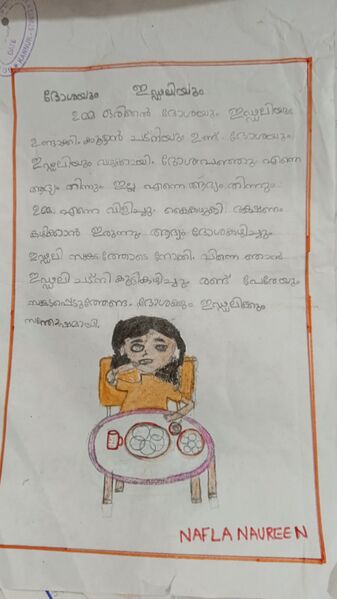 ദോശയും ഇഡ്ഡലിയും
ഉമ്മ ഒരിക്കൽ ദോശയും ഇഡ്ഡലിയും
ഉണ്ടാക്കി കൂട്ടാൻ ചട്നിയും ഉണ്ട് ദോശയും
ഇഡ്ഡലിയും വഴക്കായി ദോശപറഞ്ഞു എന്നെ
ആദ്യം തിന്നും ഇല്ല എന്നെ ആദ്യം തിന്നും
ഉമ്മ എന്നെ വിളിച്ചു കൈകഴുകി ഭക്ഷണം
കഴിക്കാൻ ഇരുന്നു ആദ്യം ദോശകഴിച്ചും
ഇഡ്ഡലി സങ്കടത്തോടെ നോക്കി പിന്നെ ഞാൻ
ഇഡ്ഡലി ചട്നി കൂട്ടികഴിച്ചു രണ്ട് പേരേയും
സങ്കടപ്പെടുത്തേണ്ട ദോശക്കും ഇഡ്ഡലിക്കും
സന്തോഷമായി.
NAFLA NAUREEN